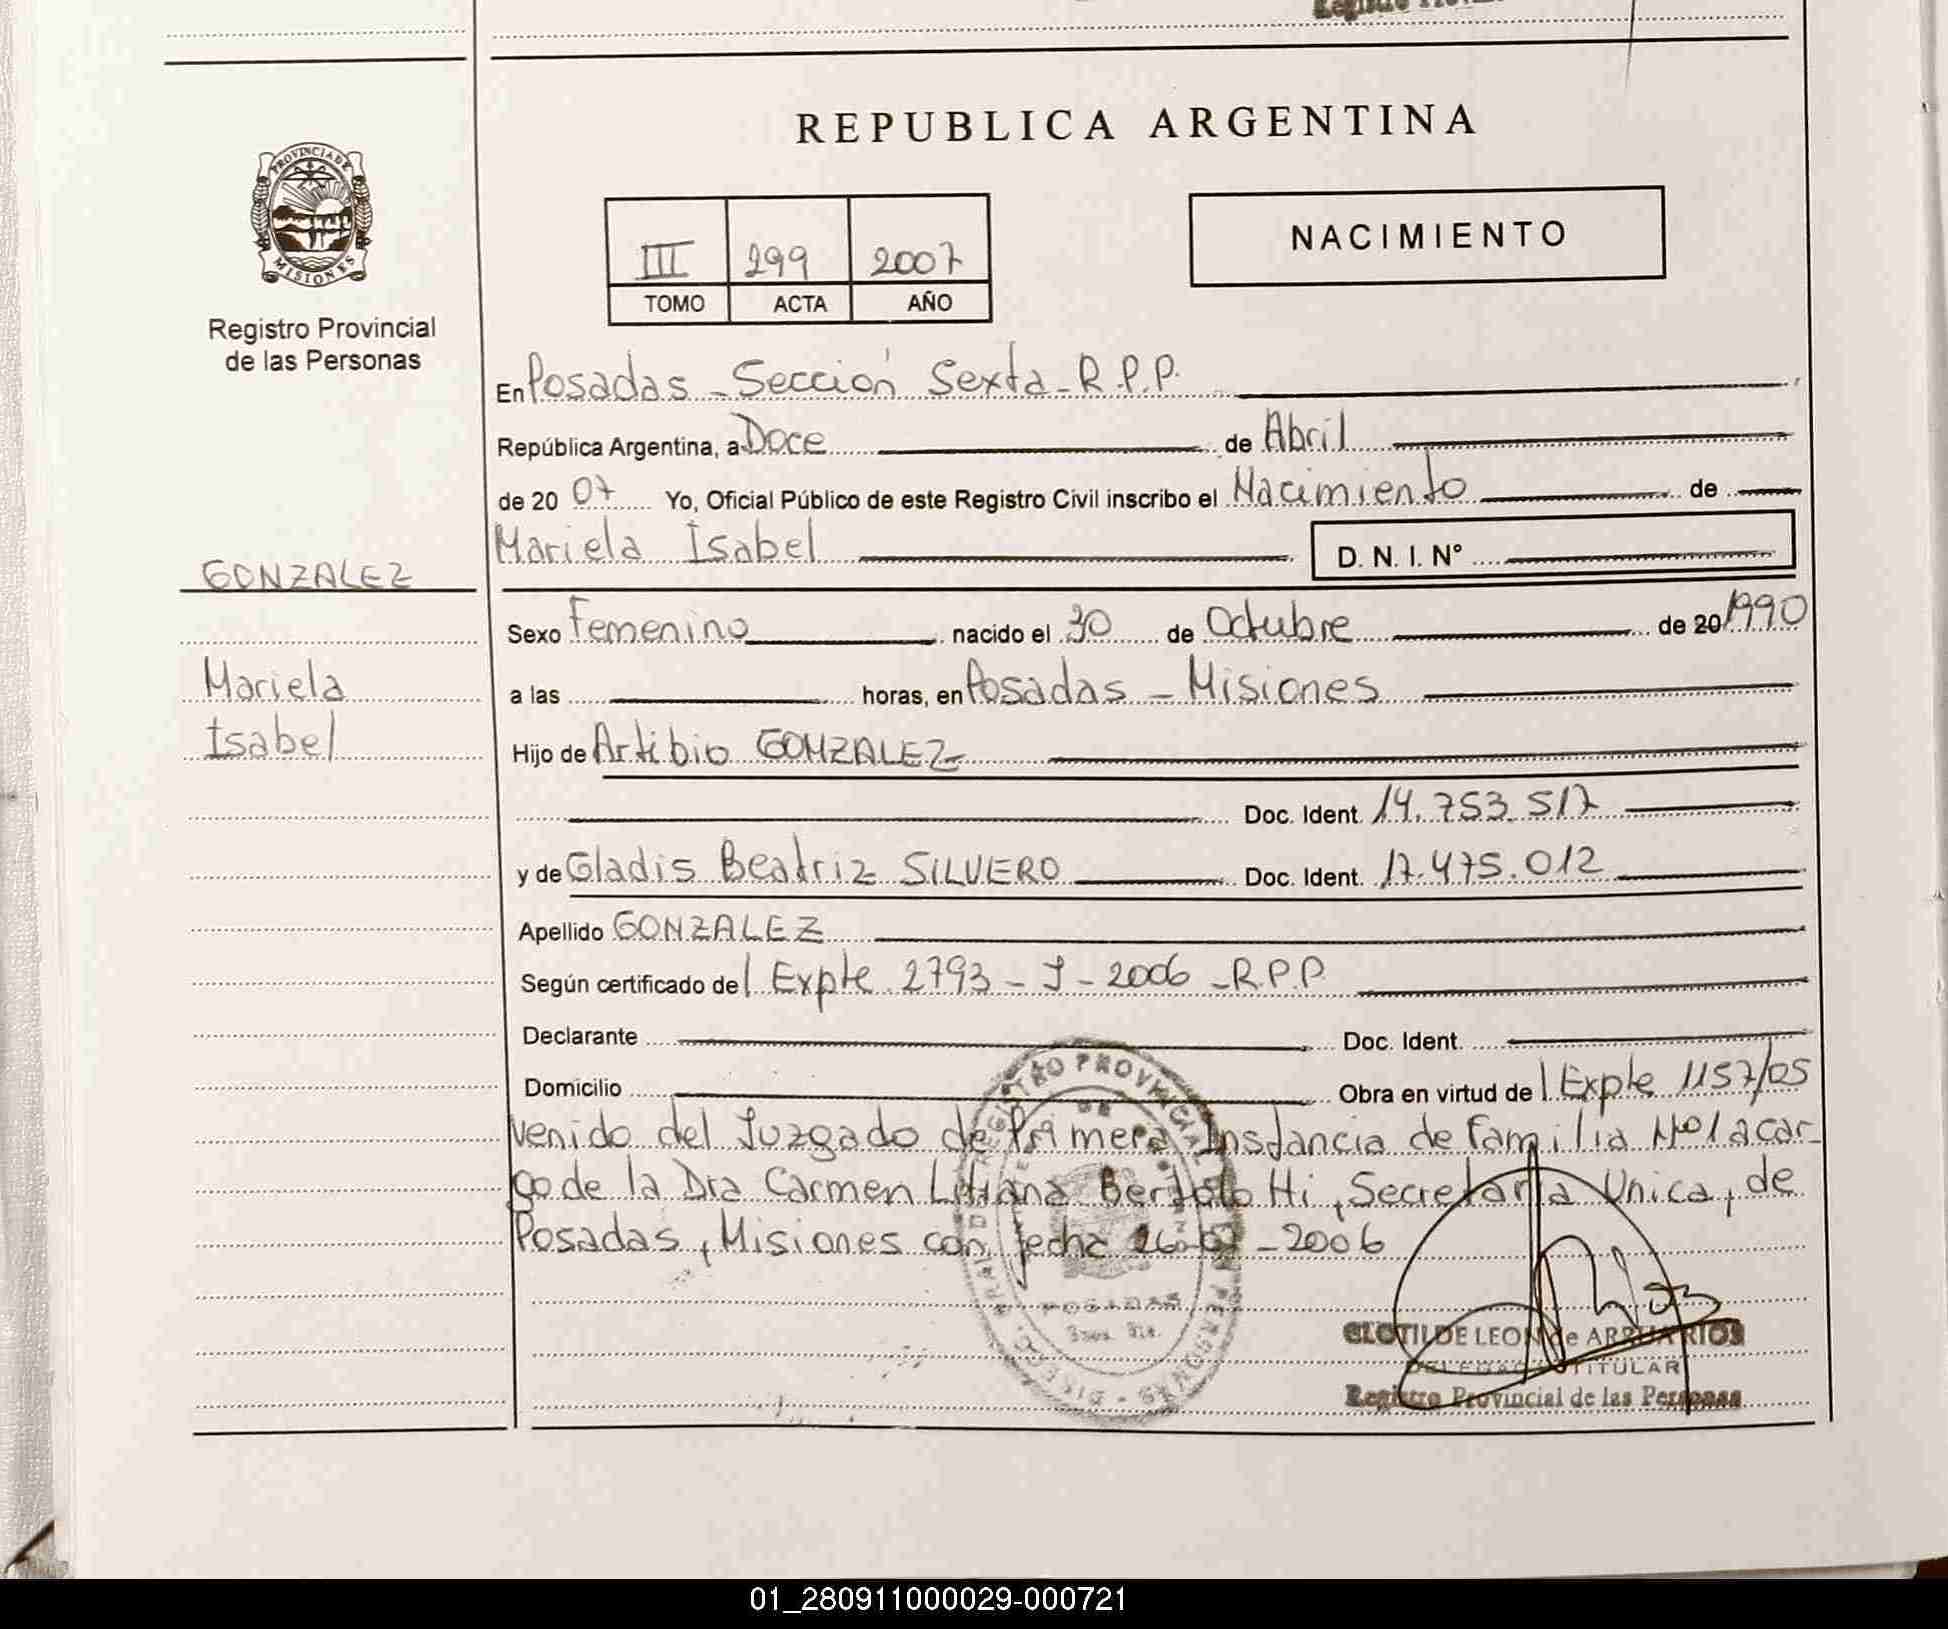 REPUBLICA ARGENTINA
PROVINCIA DE
MISIONES
Registro Provincial
de las Personas
III 299 2007
TOMO ACTA AÑO
NACIMIENTO
En Posadas - Sección Sexta - R.P.P.
República Argentina, a Doce de Abril
de 20 07 Yo, Oficial Público de este Registro Civil inscribo el Nacimiento de
Mariela Isabel D. N. I. N°
GONZALEZ
Sexo Femenino nacido el 30 de Octubre de 20 1990
Mariela
a las horas, en Posadas - Misiones
Isabel
Hijo de Artibio GONZALEZ
Doc. Ident. 14.753.517
y de Gladis Beatriz SILVERO Doc. Ident. 17.475.012
Apellido GONZALEZ
Según certificado del Expte 2793 - J - 2006 - R.P.P
Declarante Doc. Ident.
Domicilio Obra en virtud del Expte 1157/05
venido del Juzgado de Primera Instancia de Familia Nº 1 a car-
go de la Dra Carmen Liliana Hi, Secretaria Unica, de
Posadas, Misiones con fecha - 2006
REGISTRO PROVINCIAL
DE
POSADAS
CLOTILDE LEON de RIOS
DELEGADA TITULAR
Registro Provincial de las Personas
01_280911000029-000721